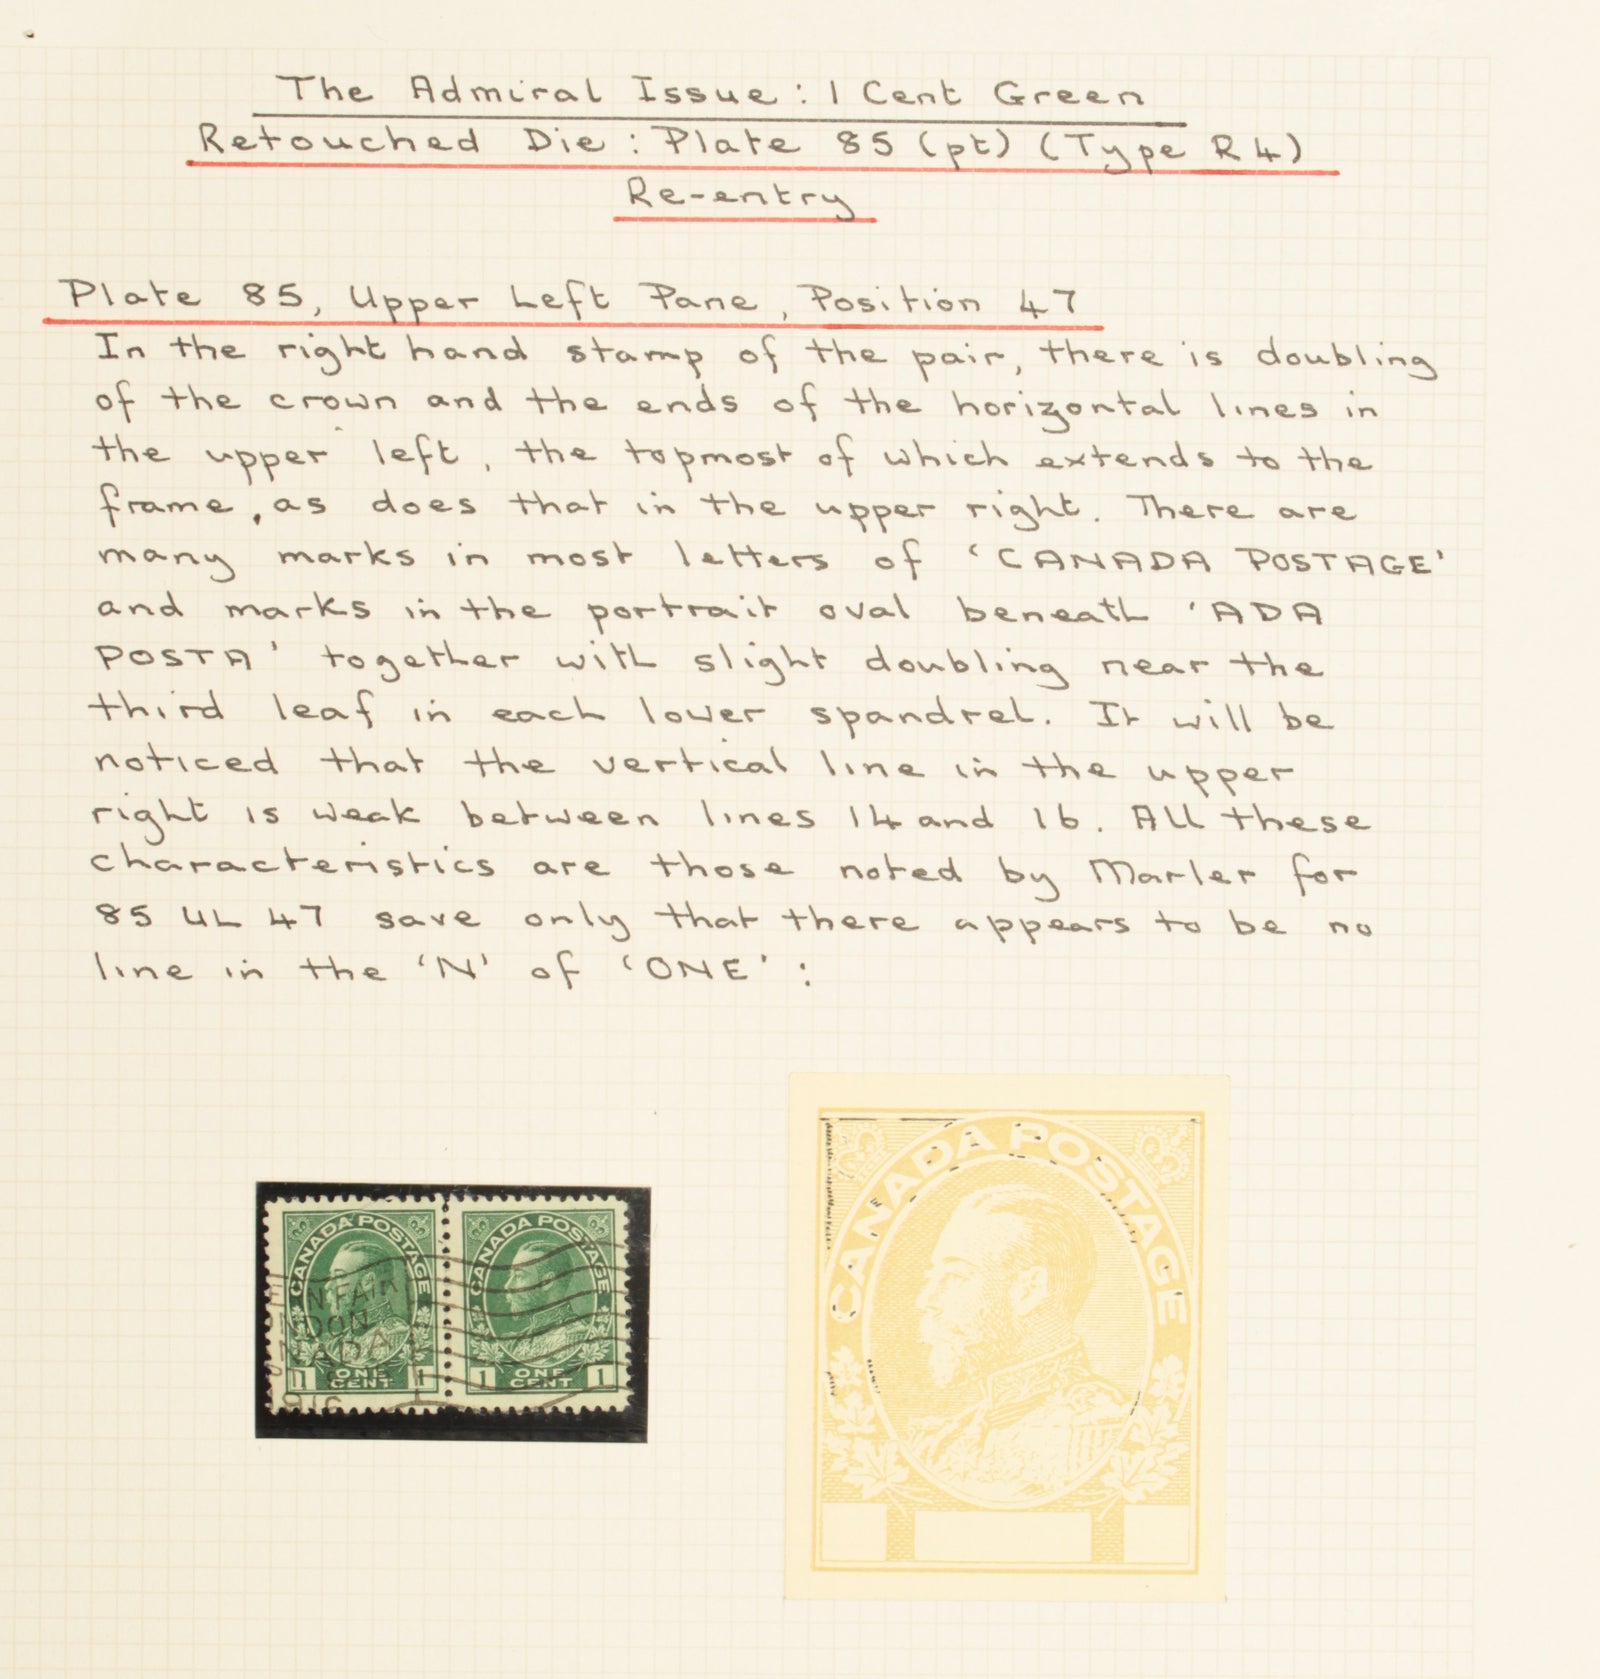 The Admiral Issue : 1 Cent Green
Retouched Die : Plate 85 (pt) (Type R4)
Re-entry
Plate 85, Upper Left Pane, Position 47
In the right hand stamp of the pair, there is doubling
of the crown and the ends of the horizontal lines in
the upper left, the topmost of which extends to the
frame, as does that in the upper right. There are
many marks in most letters of 'CANADA POSTAGE'
and marks in the portrait oval beneath 'ADA
POSTA' together with slight doubling near the
third leaf in each lower spandrel. It will be
noticed that the vertical line in the upper
right is weak between lines 14 and 16. All these
characteristics are those noted by Marler for
85 UL 47 save only that there appears to be no
line in the 'N' of 'ONE' :
CANADA POSTAGE
1 ONE CENT 1
N FAIR
DON
ADA
1916
CANADA POSTAGE
1 ONE CENT 1
CANADA POSTAGE